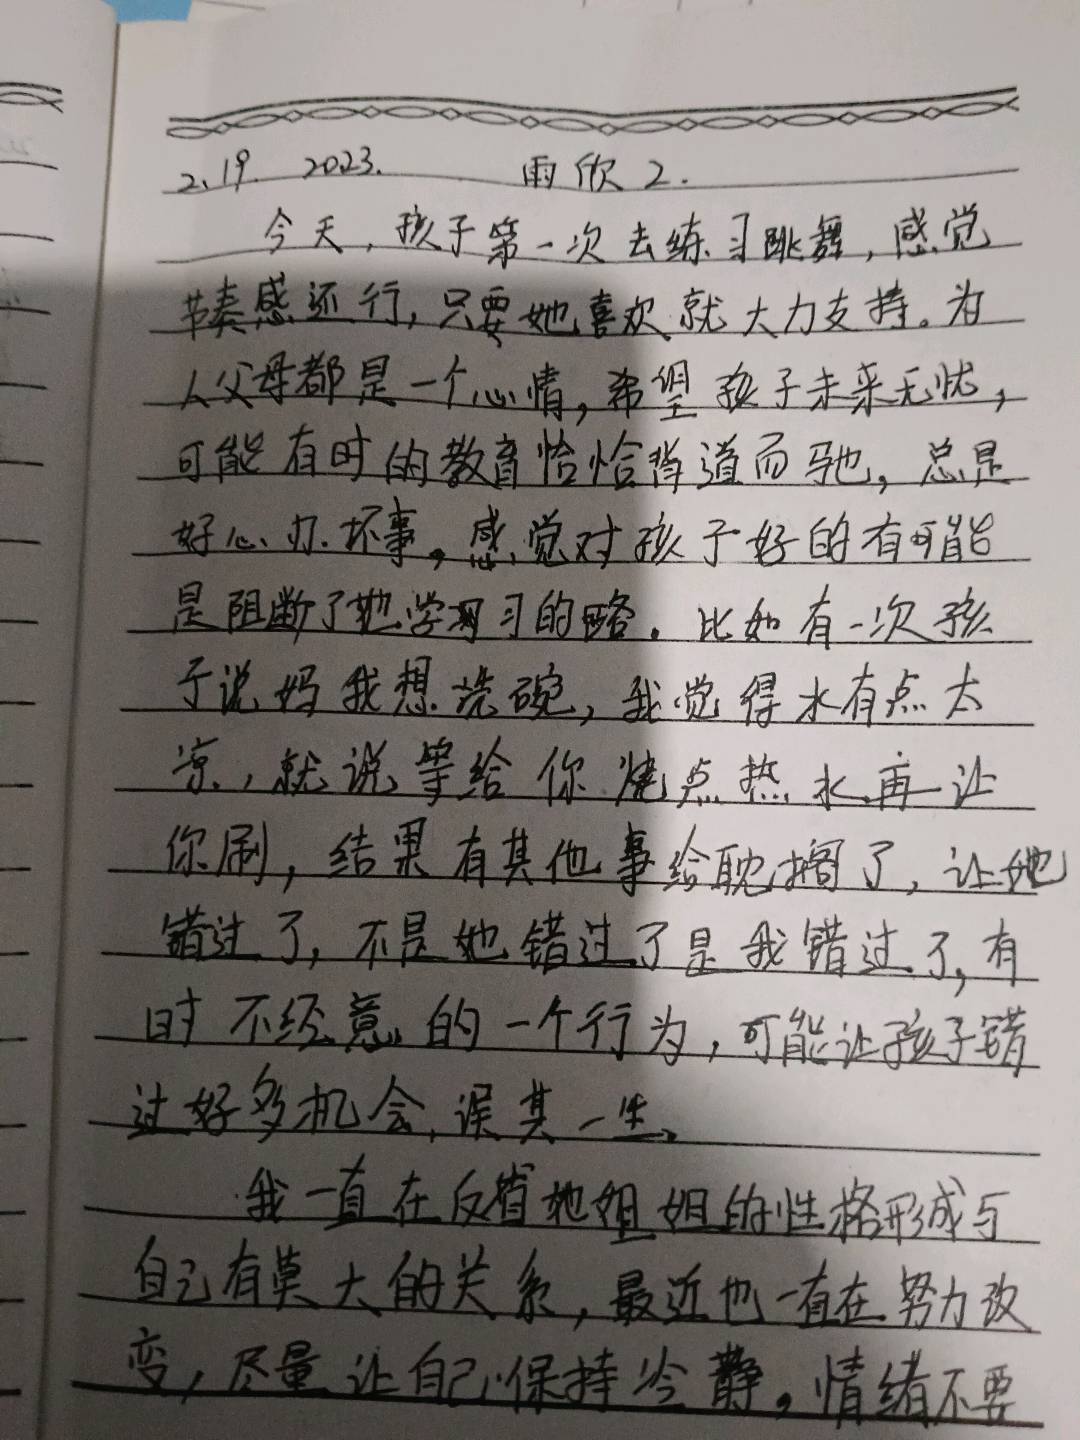 2.19. 2023. 雨欣 2.
今天，孩子第一次去练习跳舞，感觉
节奏感还行，只要她喜欢就大力支持。为
人父母都是一个心情，希望孩子未来无忧，
可能有时的教育恰恰背道而驰，总是
好心办坏事。感觉对孩子好的有可能
是阻断了她学习的路。比如有一次孩
子说妈我想洗碗，我觉得水有点太
凉，就说等给你烧点热水再让
你刷，结果有其他事给耽搁了，让她
错过了，不是她错过了是我错过了，有
时不经意的一个行为，可能让孩子错
过好多机会，误其一生、
我一直在反省她姐姐的性格形成与
自己有莫大的关系，最近也一直在努力改
变，尽量让自己保持冷静。情绪不要